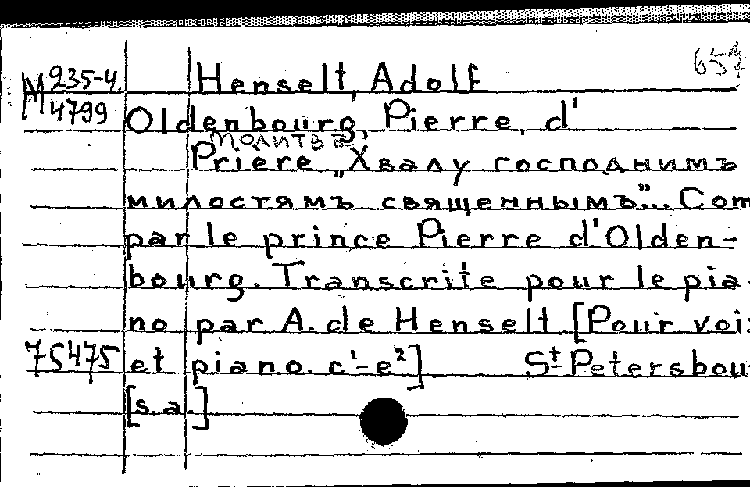 М 235-4 Henselt, Adolf 657
4799 Oldenbourg, Pierre, d'
молитва
Prière „Хвалу господнимъ
милостямъ священнымъ"... Com
par le prince Pierre d'Olden-
bourg. Transcrite pour le pia-
no par A. de Henselt [Pour voi
75475 et piano. c'-e²] St Petersbou
[s.a.]